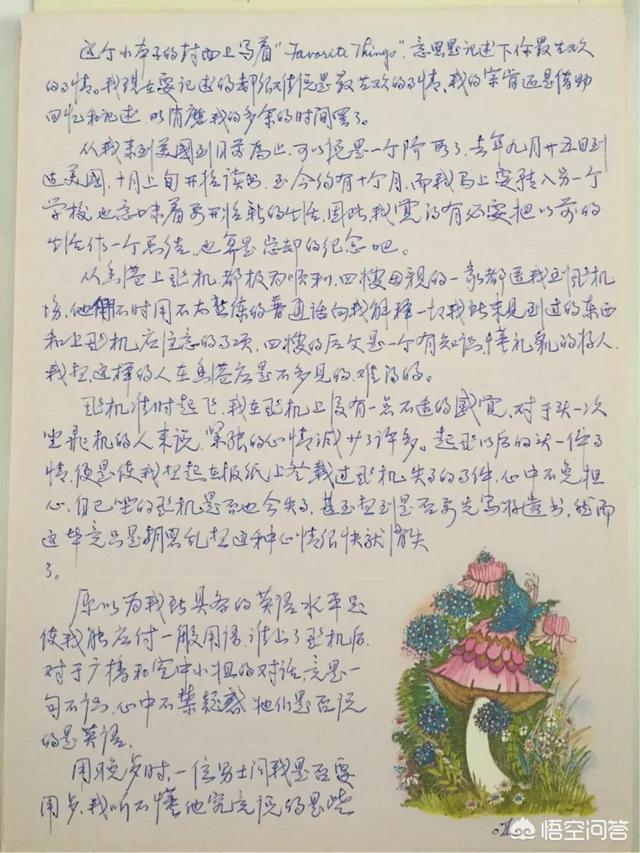 这个小本子的封面上写着"Favorite Things",意思是记述下你最喜欢
的事情。我现在要记述的都很难说是最喜欢的事情,我的宗旨还是借助
回忆和记述 以消磨我的多余的时间罢了。
从我来到美國到目前为止,可以说是一个阶段了,去年九月廿五日到
达美國,十月上旬开始读书,至今约有十个月,而我马上要转入另一个
学校,也意味着要开始新的生活,因此,我覚得有必要把以前的
生活作一个总结,也算是总部的纪念吧。
从香港上飞机,都极为顺利,四嫂母親的一家都送我到飞机
场,他们不时用不太熟练的普通话向我解释一切我从未見到过的东西
和上飞机应注意的事项,四嫂的后父是一个有知识,懂礼貌的好人,
我想这样的人在香港应是不多見的,难得的。
飞机准时起飞,我在飞机上没有一点不适的感覚,对于头一次
坐飛机的人来说,紧张的心情减少了许多。起飞以后的头一件事
情,便是使我想起在报纸上登載过飞机失事的事件,心中不免担
心,自己坐的飞机是否也会失事,甚至想到是否要先写好遗书,然而
这毕竟只是胡思乱想,这种心情很快就消失
了。
原以为我所具备的英语水平足
使我能应付一般用语,谁上了飞机后,
对于广播和空中小姐的对话,竟是一
句不识,心中不禁疑惑,她们是否说
的是英语。
用晚点时,一位男士问我是否要
用点,我听不懂他究竟说的是些
1
悟空问答